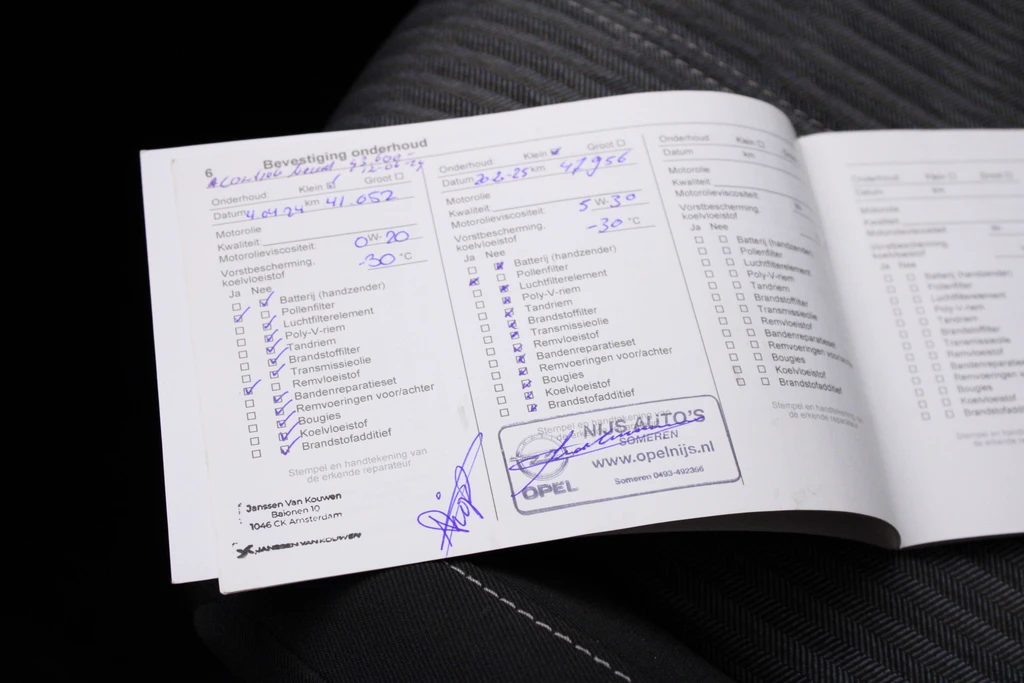 6 Bevestiging onderhoud
Onderhoud: Klein Groot
Datum 4 04 24 km 41.052
Motorolie
Kwaliteit:
Motorolieviscositeit: 0 W- 20
Vorstbescherming, koelvloeistof -30 °C
Ja Nee
Batterij (handzender)
Pollenfilter
Luchtfilterelement
Poly-V-riem
Tandriem
Brandstoffilter
Transmissieolie
Remvloeistof
Bandenreparatieset
Remvoeringen voor/achter
Bougies
Koelvloeistof
Brandstofadditief
Stempel en handtekening van
de erkende reparateur
Janssen Van Kouwen
1046 CK Amsterdam
JANSSEN VAN KOUWEN
Onderhoud: Klein Groot
Datum 20-2-25 km 47956
Motorolie
Kwaliteit:
Motorolieviscositeit: 5 W-30
Vorstbescherming, koelvloeistof -30 °C
Ja Nee
Batterij (handzender)
Pollenfilter
Luchtfilterelement
Poly-V-riem
Tandriem
Brandstoffilter
Transmissieolie
Remvloeistof
Bandenreparatieset
Remvoeringen voor/achter
Bougies
Koelvloeistof
Brandstofadditief
Stempel en handtekening van
NIJS AUTO'S
SOMEREN
www.opelnijs.nl
OPEL
Someren 0493-492366
Onderhoud: Klein Groot
Datum km
Motorolie
Kwaliteit:
Motorolieviscositeit: W-
Vorstbescherming, koelvloeistof °C
Ja Nee
Batterij (handzender)
Pollenfilter
Luchtfilterelement
Poly-V-riem
Tandriem
Brandstoffilter
Transmissieolie
Remvloeistof
Bandenreparatieset
Remvoeringen voor/achter
Bougies
Koelvloeistof
Brandstofadditief
Stempel en handtekening van
de erkende reparateur
Onderhoud: Klein Groot
Datum km
Motorolie
Kwaliteit:
Motorolieviscositeit: W-
Vorstbescherming, koelvloeistof
Ja Nee
Batterij (handzender)
Pollenfilter
Luchtfilterelement
Poly-V-riem
Tandriem
Brandstoffilter
Transmissieolie
Remvloeistof
Bandenreparatieset
Remvoeringen
Bougies
Koelvloeistof
Brandstofadditief